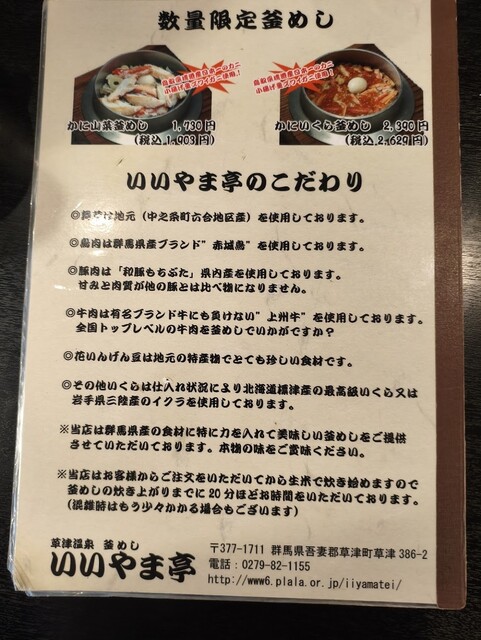 数量限定釜めし
かに山菜釜めし 1,730円
(税込 1,903円)
かにいくら釜めし 2,390円
(税込 2,629円)
いいやま亭のこだわり
◎舞茸は地元（中之条町六合地区産）を使用しております。
◎鳥肉は群馬県産ブランド”赤城鳥”を使用しております。
◎豚肉は「和豚もちぶた」県内産を使用しております。
甘みと肉質が他の豚とは比べ物になりません。
◎牛肉は有名ブランド牛にも負けない”上州牛”を使用しております。
全国トップレベルの牛肉を釜めしでいかがですか？
◎花いんげん豆は地元の特産物でとても珍しい食材です。
◎その他いくらは仕入れ状況により北海道標津産の最高級いくら又は
岩手県三陸産のイクラを使用しております。
※当店は群馬県産の食材に特に力を入れて美味しい釜めしをご提供
させていただいております。本物の味をご賞味ください。
※当店はお客様からご注文をいただいてから生米で炊き始めますので
釜めしの炊き上がりまでに20分ほどお時間をいただいております。
(混雑時はもう少々かかる場合もございます)
草津温泉 釜めし
いいやま亭
〒377-1711 群馬県吾妻郡草津町草津 386-2
電話：0279-82-1155
http://www6.plala.or.jp/iiyamatei/